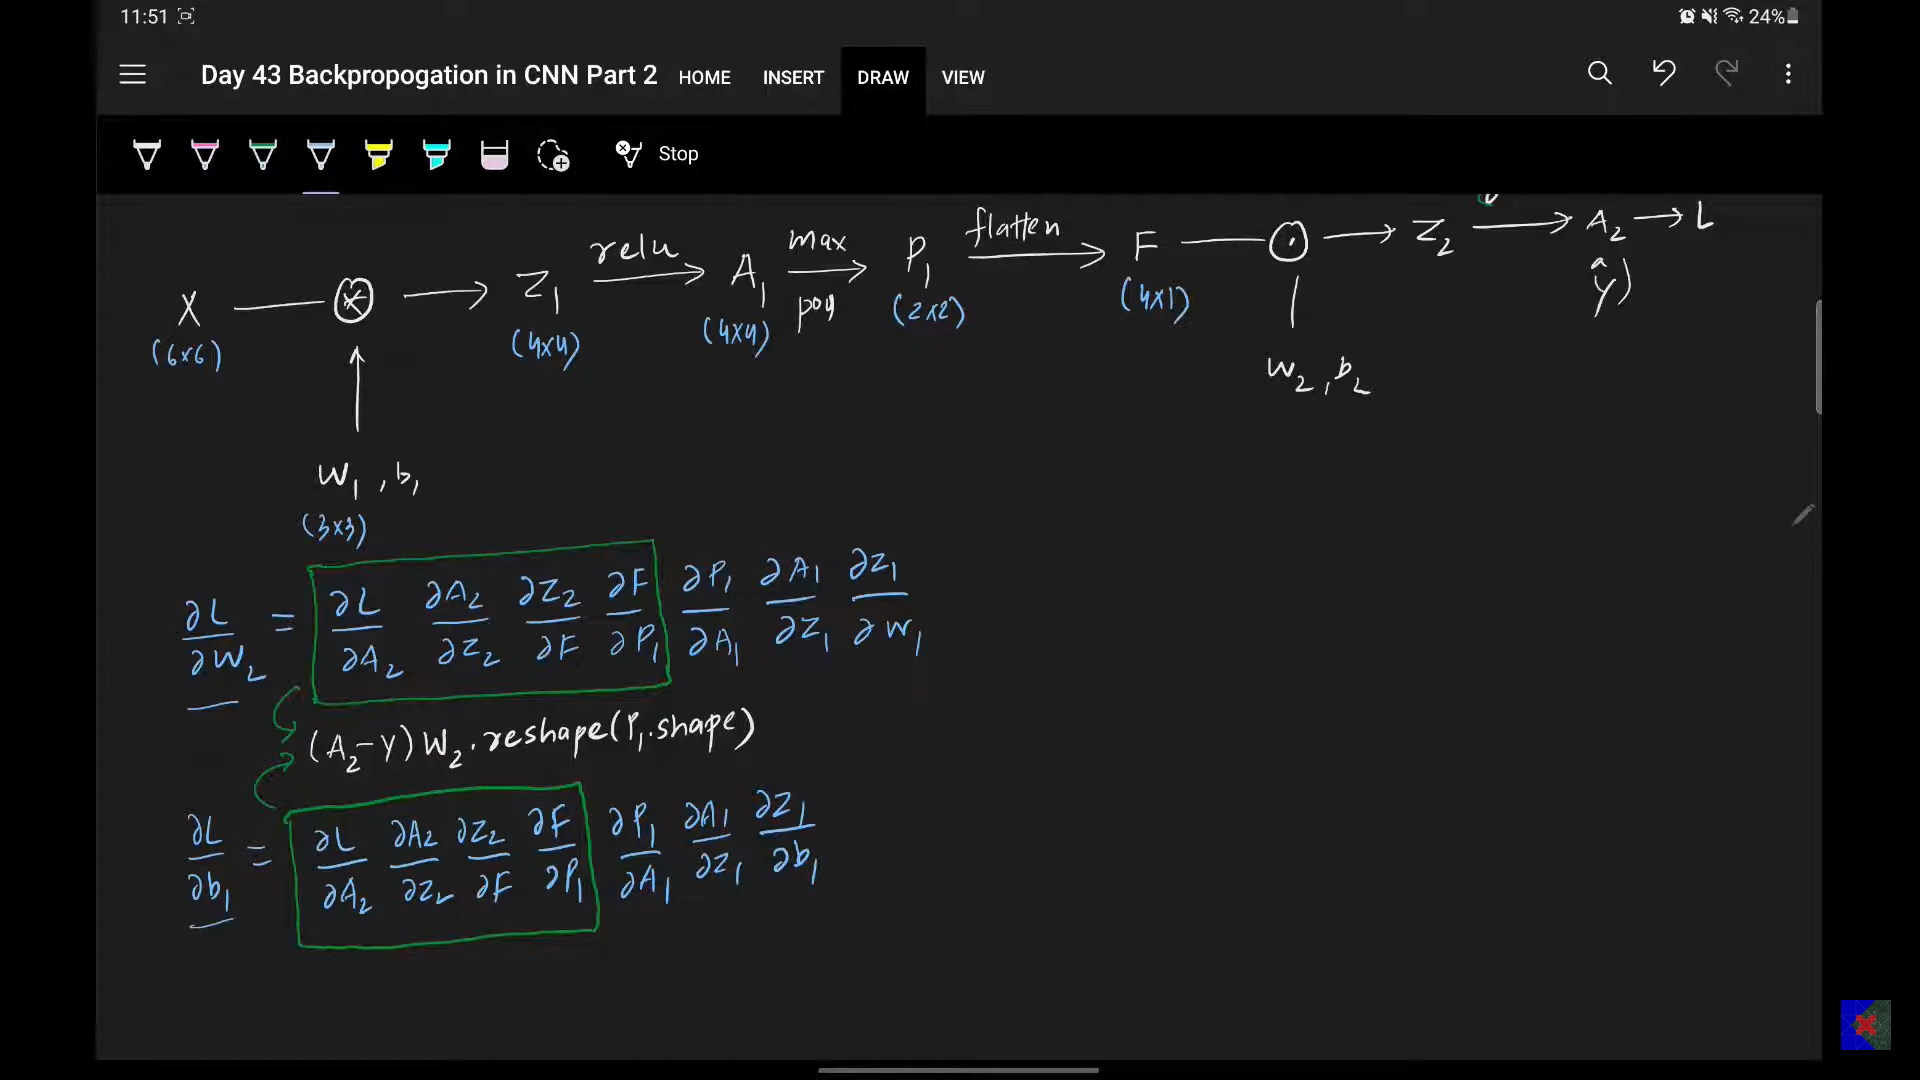 11:51 24%
Day 43 Backpropogation in CNN Part 2 HOME INSERT DRAW VIEW
Stop
X → Z₁ relu → A₁ max pool → P₁ flatten → F → Z₂ → A₂ → L
(6x6) (4x4) (4x4) (2x2) (4x1) ŷ)
W₂, b₂
W₁, b₁
(3x3)
∂L/∂W₂ = ∂L/∂A₂ ∂A₂/∂Z₂ ∂Z₂/∂F ∂F/∂P₁ ∂P₁/∂A₁ ∂A₁/∂Z₁ ∂Z₁/∂W₁
(A₂-Y) W₂.reshape(P₁.shape)
∂L/∂b₁ = ∂L/∂A₂ ∂A₂/∂Z₂ ∂Z₂/∂F ∂F/∂P₁ ∂P₁/∂A₁ ∂A₁/∂Z₁ ∂Z₁/∂b₁